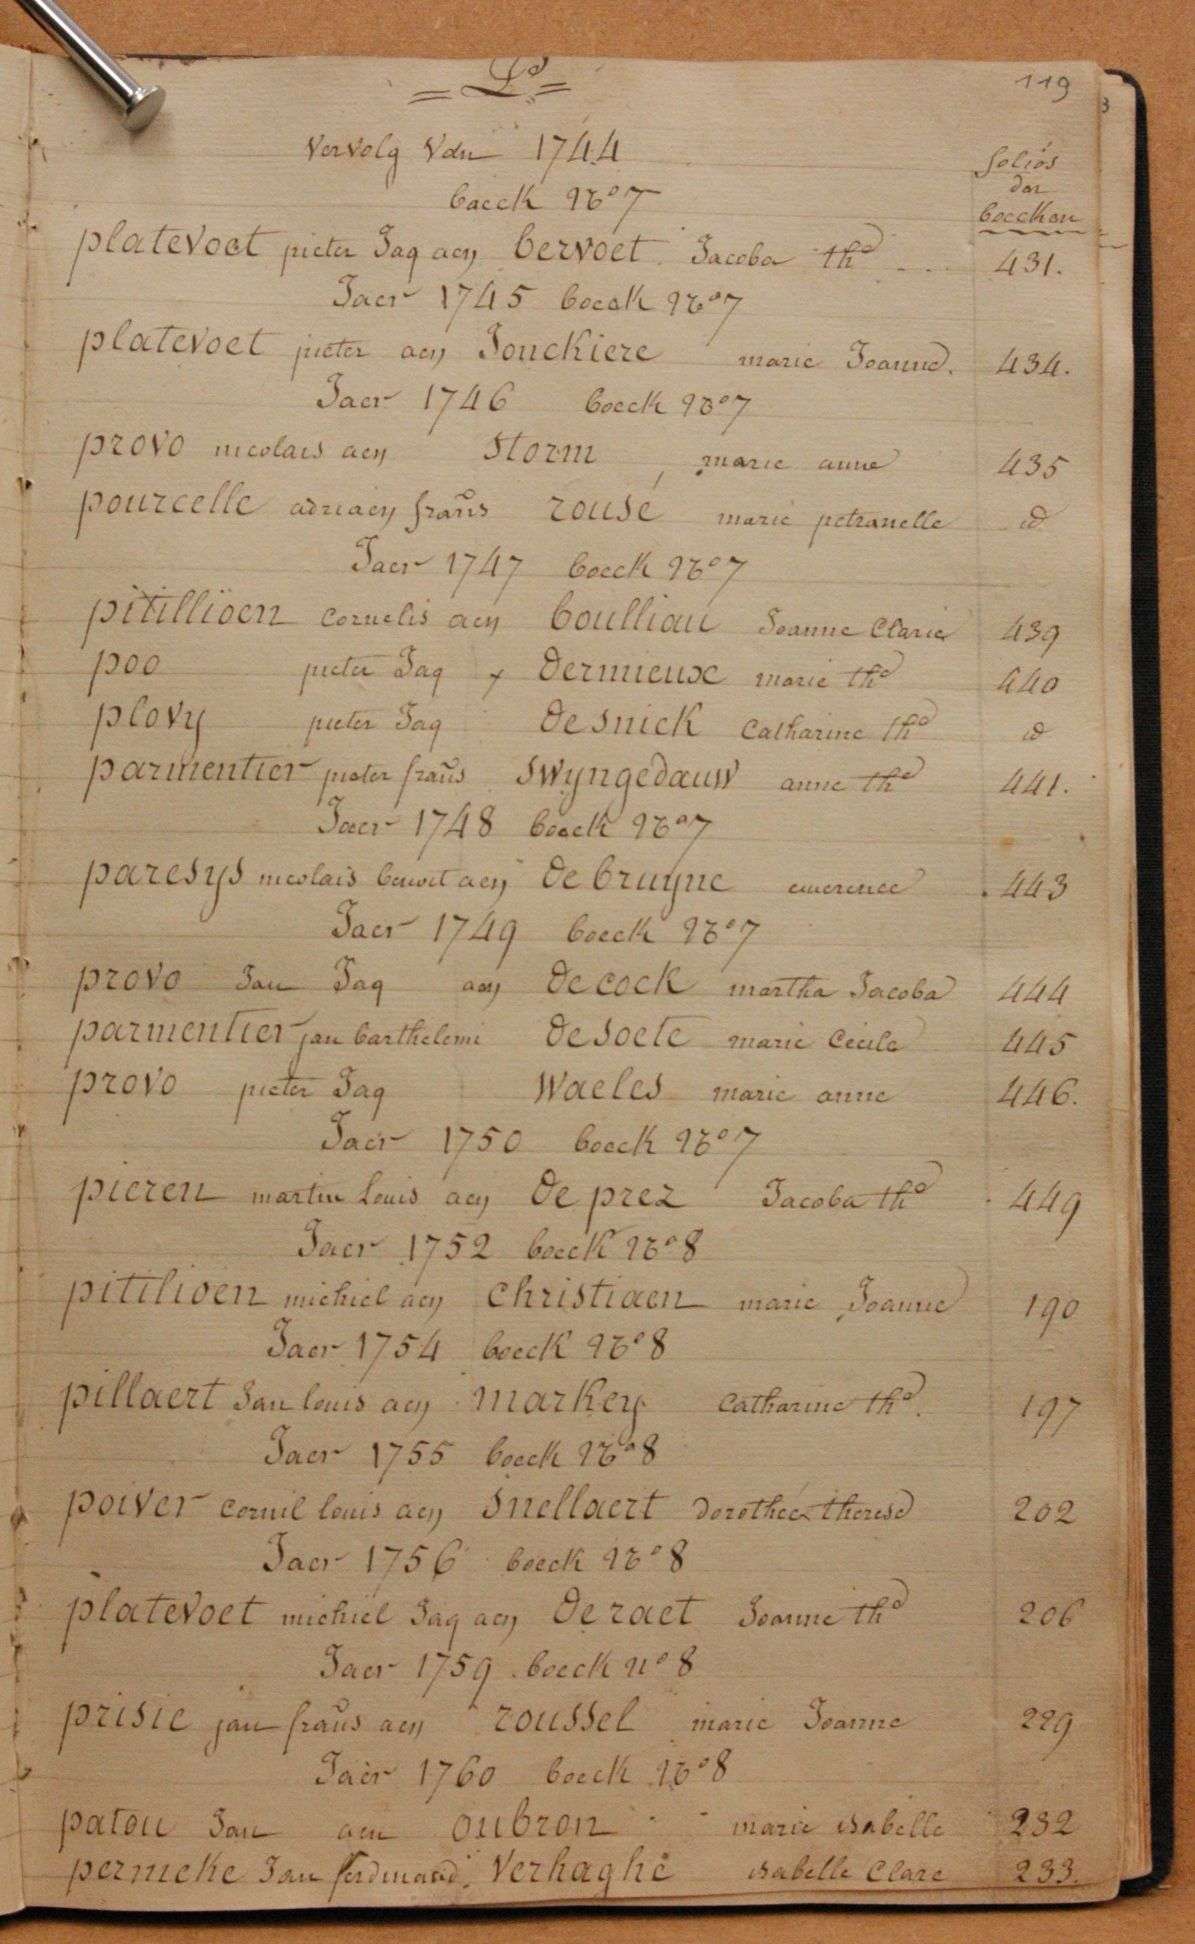 119
= Ps =
Vervolg Van 1744
boeck No 7
folios
der
boecken
platevoet pieter Jaq aen bervoet Jacoba the 431.
Jaer 1745 boeck No 7
platevoet pieter aen Jonckiere marie Joanne. 434.
Jaer 1746 boeck No 7
provo nicolais aen storm marie anne 435
pourcelle adriaen frans rousé marie petranelle id
Jaer 1747 boeck No 7
pitillioen Cornelis aen boulliau Joanne Clarie 439
poo pieter Jaq x dermieux marie the 440
plovy pieter Jaq de snick Catharine the id
parmentier pieter frans swyngedauw anne the 441.
Jaer 1748 boeck No 7
paresys nicolais benoit aen de bruyne emerence 443
Jaer 1749 boeck No 7
provo Jan Jaq aen de cock martha Jacoba 444
parmentier jan barthelemi de soete marie Cecile 445
provo pieter Jaq waeles marie anne 446.
Jaer 1750 boeck No 7
pieren martin louis aen de prez Jacoba the 449
Jaer 1752 boeck No 8
pitilioen michiel aen christiaen marie Joanne 190
Jaer 1754 boeck No 8
pillaert Jan louis aen markey Catharine the. 197
Jaer 1755 boeck No 8
poiver cornil louis aen snellaert dorothée therese 202
Jaer 1756 boeck No 8
platevoet michiel Jaq aen de raet Joanne the 206
Jaer 1759 boeck no 8
prisie jan frans aen roussel marie Joanne 229
Jaer 1760 boeck No 8
patou Jan aen oubron marie isabelle 232
permeke Jan ferdinand. Verhaghe isabelle Clare 233.